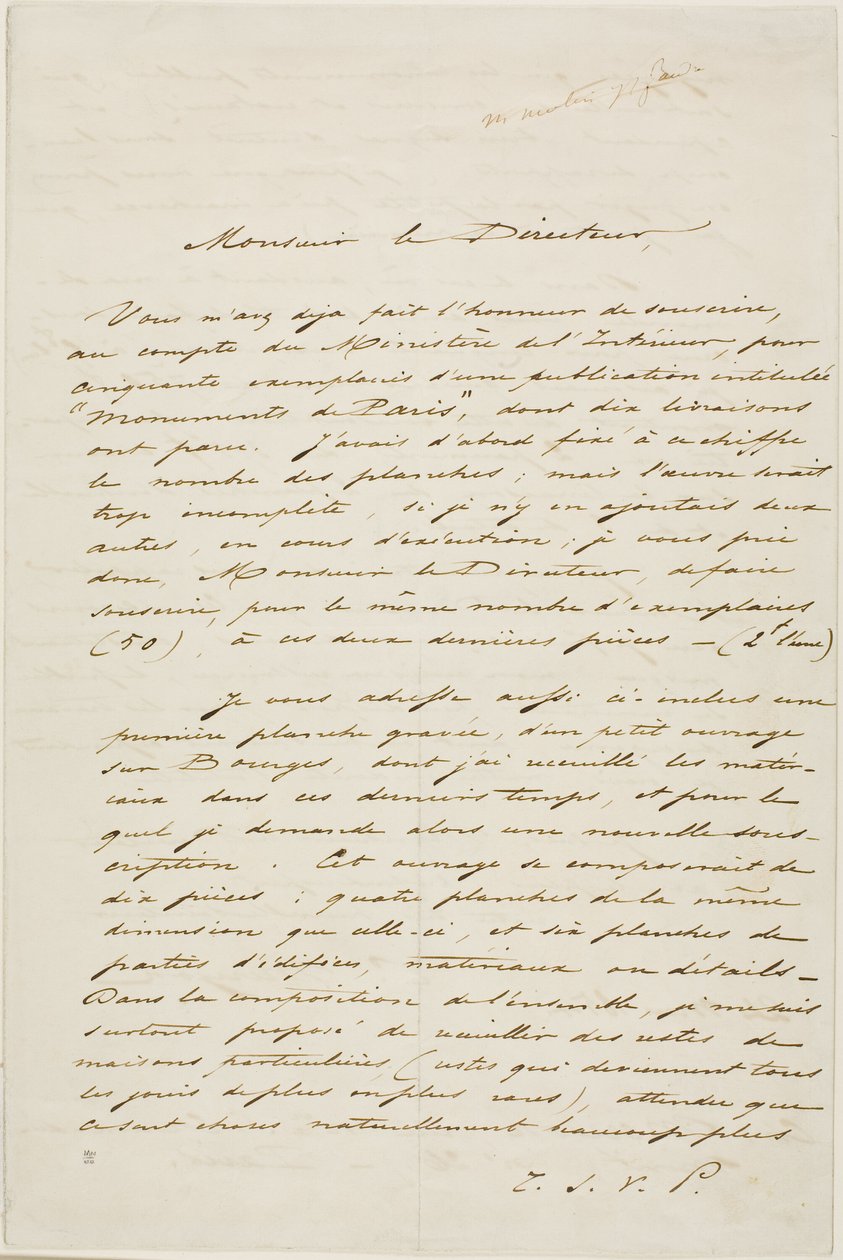 Monsieur le Directeur,
Vous m'avez déja fait l'honneur de souscrire,
au compte du Ministère de l'Intérieur, pour
cinquante exemplaires d'une publication intitulée
"Monuments de Paris", dont dix livraisons
ont paru. J'avais d'abord fixé à ce chiffre
le nombre des planches ; mais l'œuvre serait
trop incomplète, si je n'y en ajoutais deux
autres, en cours d'exécution ; je vous prie
donc, Monsieur le Directeur, de faire
souscrire, pour le même nombre d'exemplaires
(50), à ces deux dernières pièces — (2f l'une)
Je vous adresse aussi ci-inclus une
première planche gravée, d'un petit ouvrage
sur Bourges, dont j'ai recueilli les matér-
iaux dans ces derniers temps, et pour le
quel je demande alors une nouvelle sous-
cription. Cet ouvrage se composerait de
dix pièces ; quatre planches de la même
dimension que celle-ci, et six planches de
parties d'édifices, matériaux ou détails —
Dans la composition de l'ensemble, je me suis
surtout proposé de recueillir des restes de
maisons particulières, (restes qui deviennent tous
les jours de plus en plus rares), attendu que
ce sont choses naturellement beaucoup plus
T. S. V. P.
MN